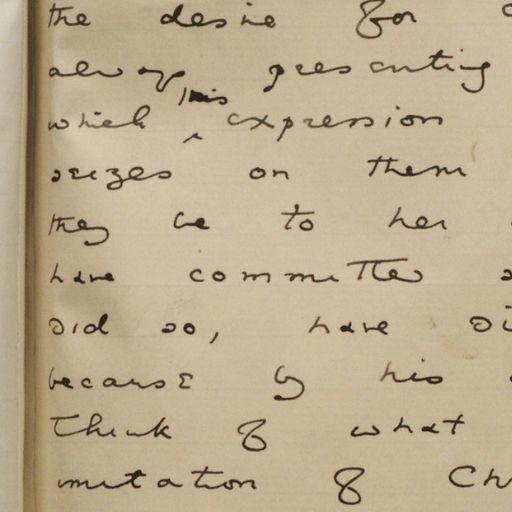 the desire for
always presenting
which this expression
seizes on them
they be to her
have committed
did so, have
because by his
Think of what
imitation of Ch